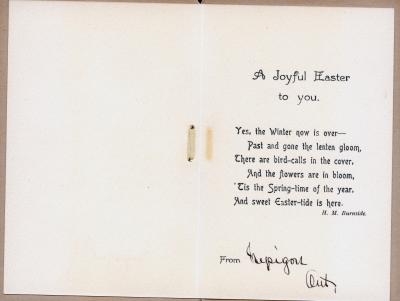 A Joyful Easter
to you.
Yes, the Winter now is over—
Past and gone the lenten gloom,
There are bird-calls in the cover,
And the flowers are in bloom,
'Tis the Spring-time of the year,
And sweet Easter-tide is here.
H. M. Burnside.
From Nepigon
Ont,